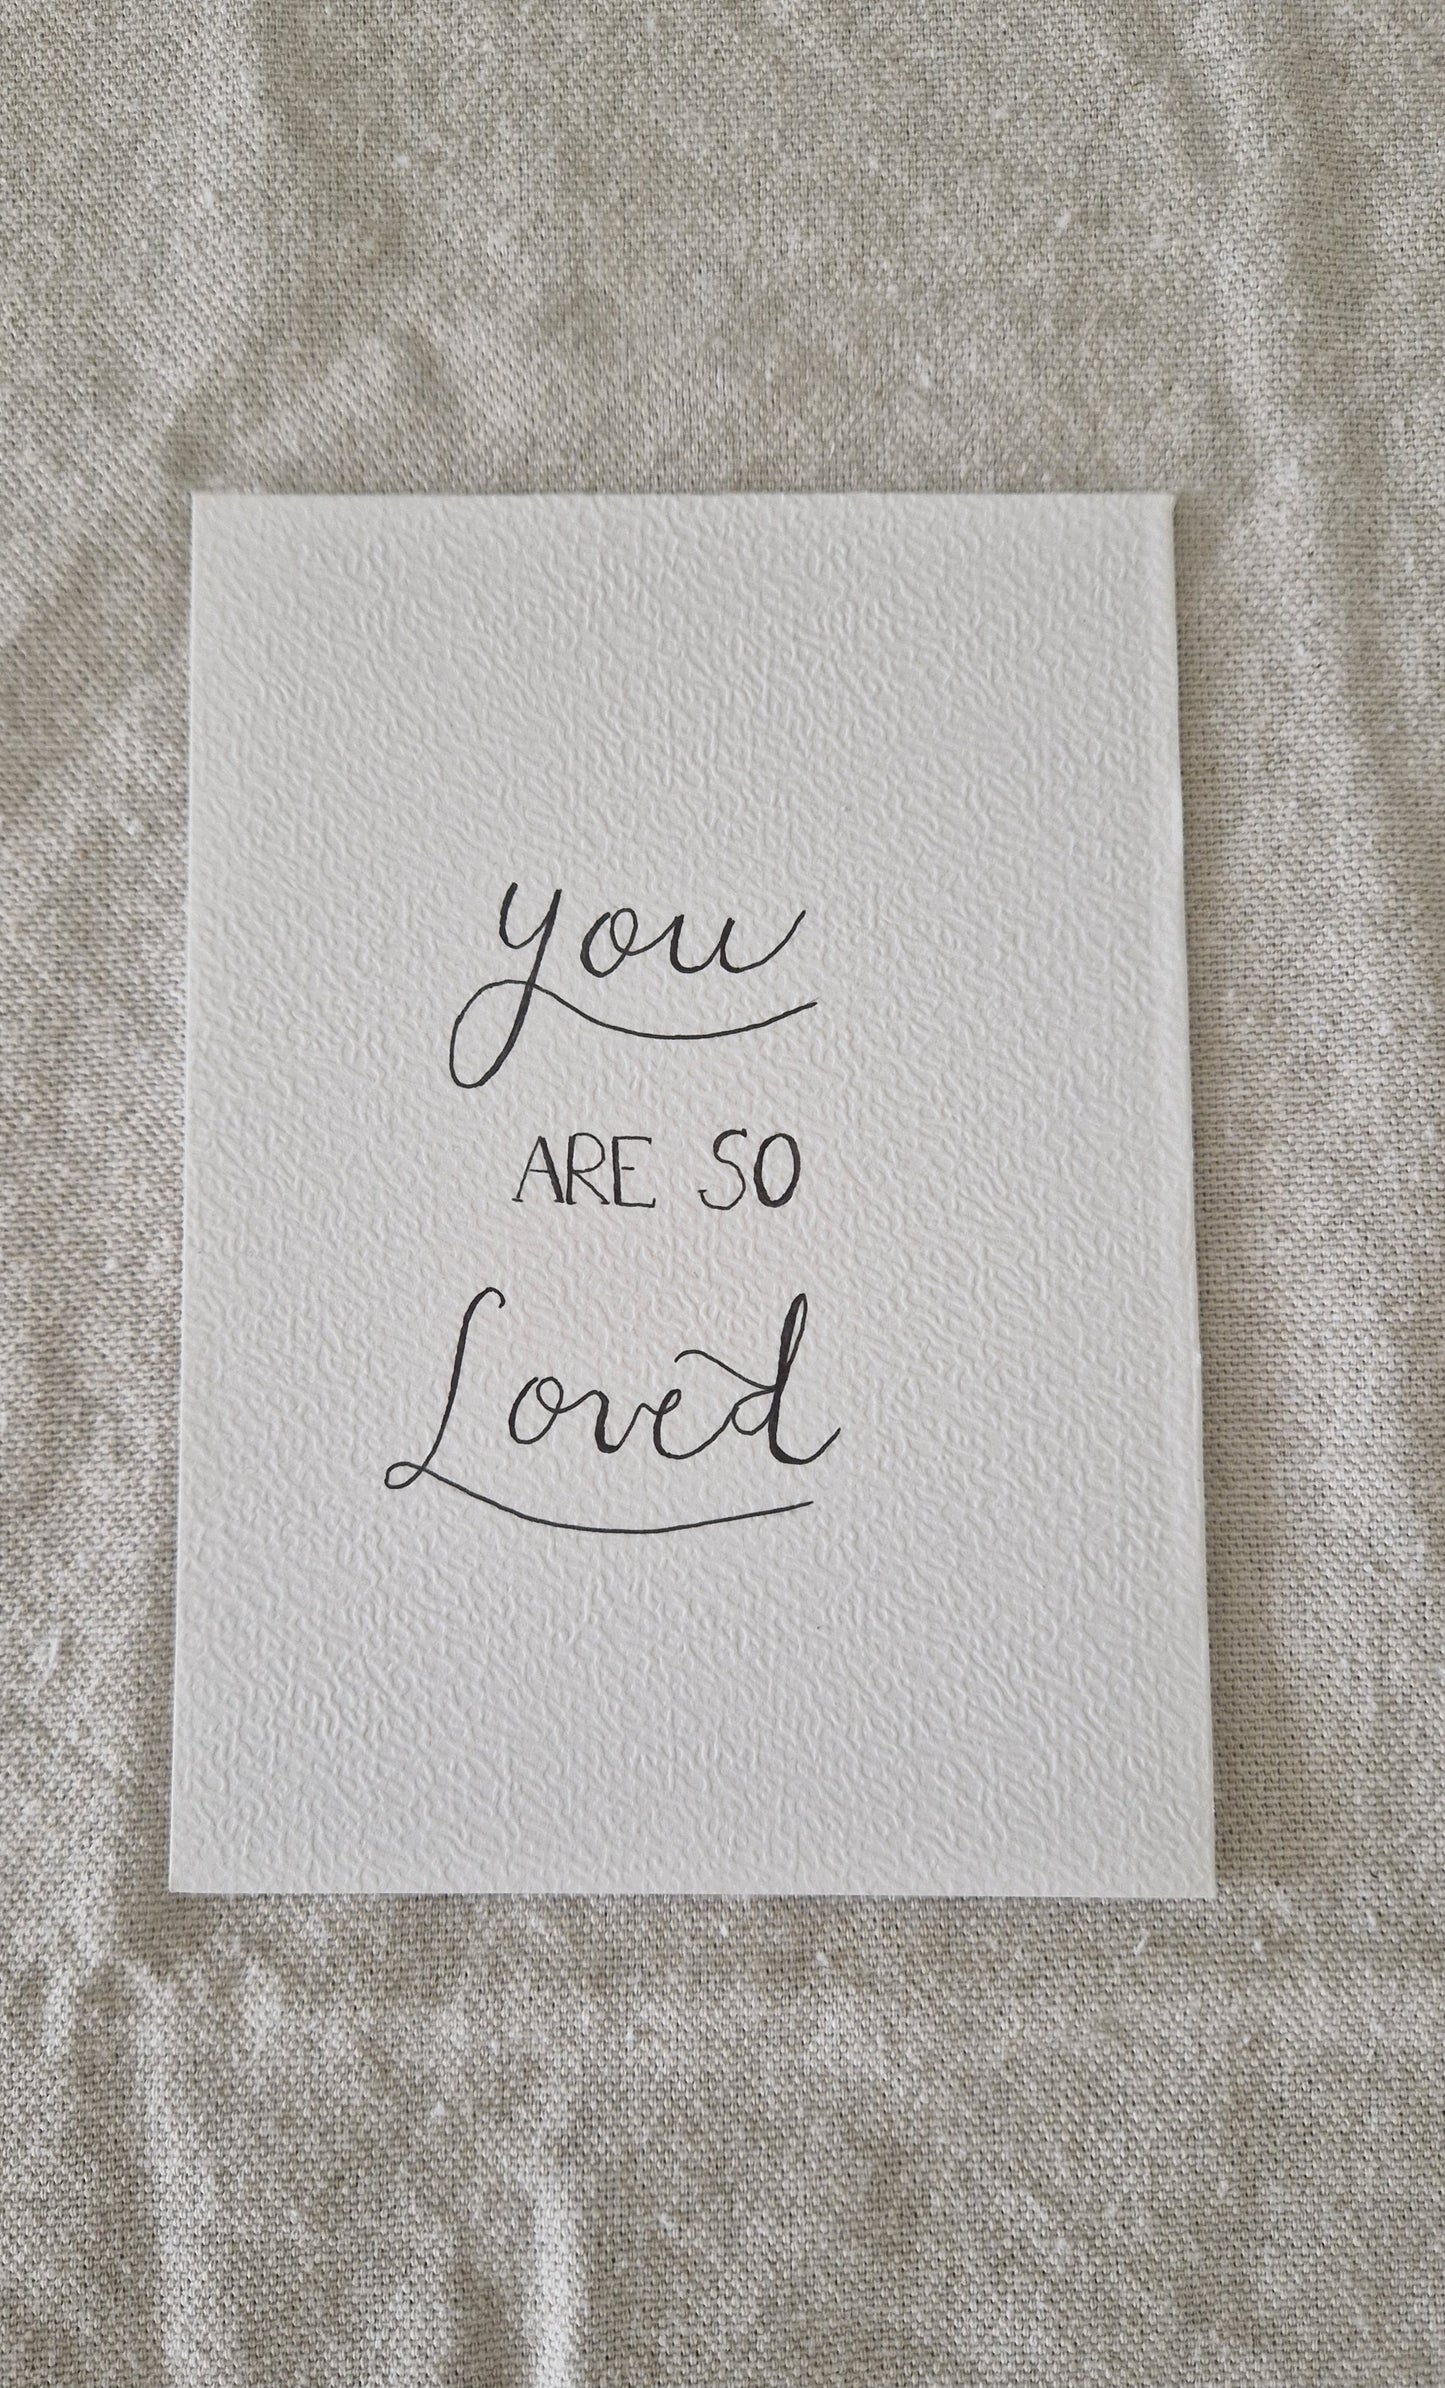 you
ARE SO
Loved